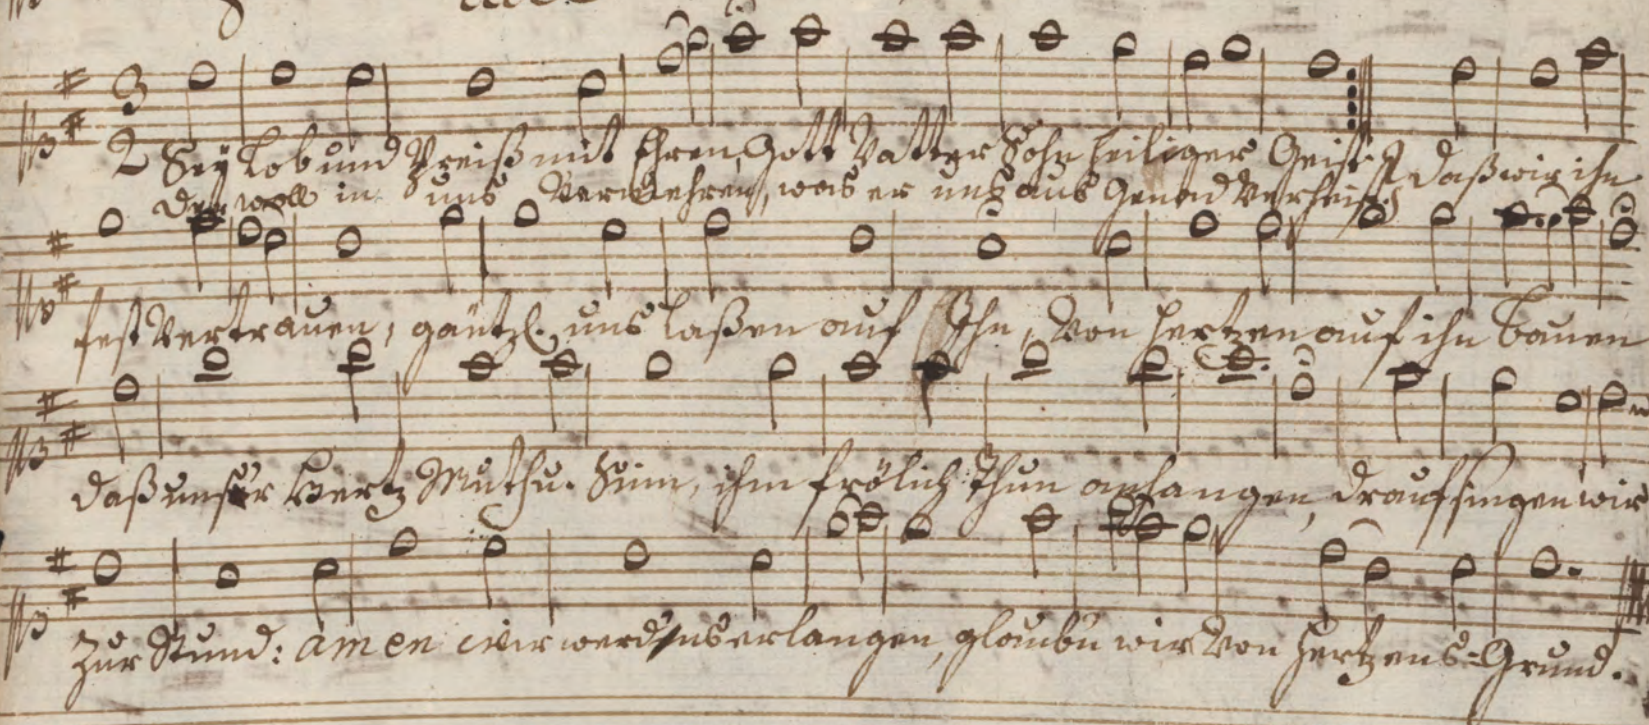 3
2 Seÿ Lob und Preiß mit Ehren, Gott Vatter Sohn Heiliger Geist. daß wir ihn
der woll in uns Vermehren, was er uns aus Genad Verheist
fest Vertrauen, gäntzl. uns laßen auf Ihn, Von Hertzen auf ihn bauen
daß unser Hertz Muth u. Sinn, ihm frölich Thun anhangen, drauf singen wir
zur Stund: amen wir werdens erlangen, glaub̅n wir Von Hertzens-Grund.